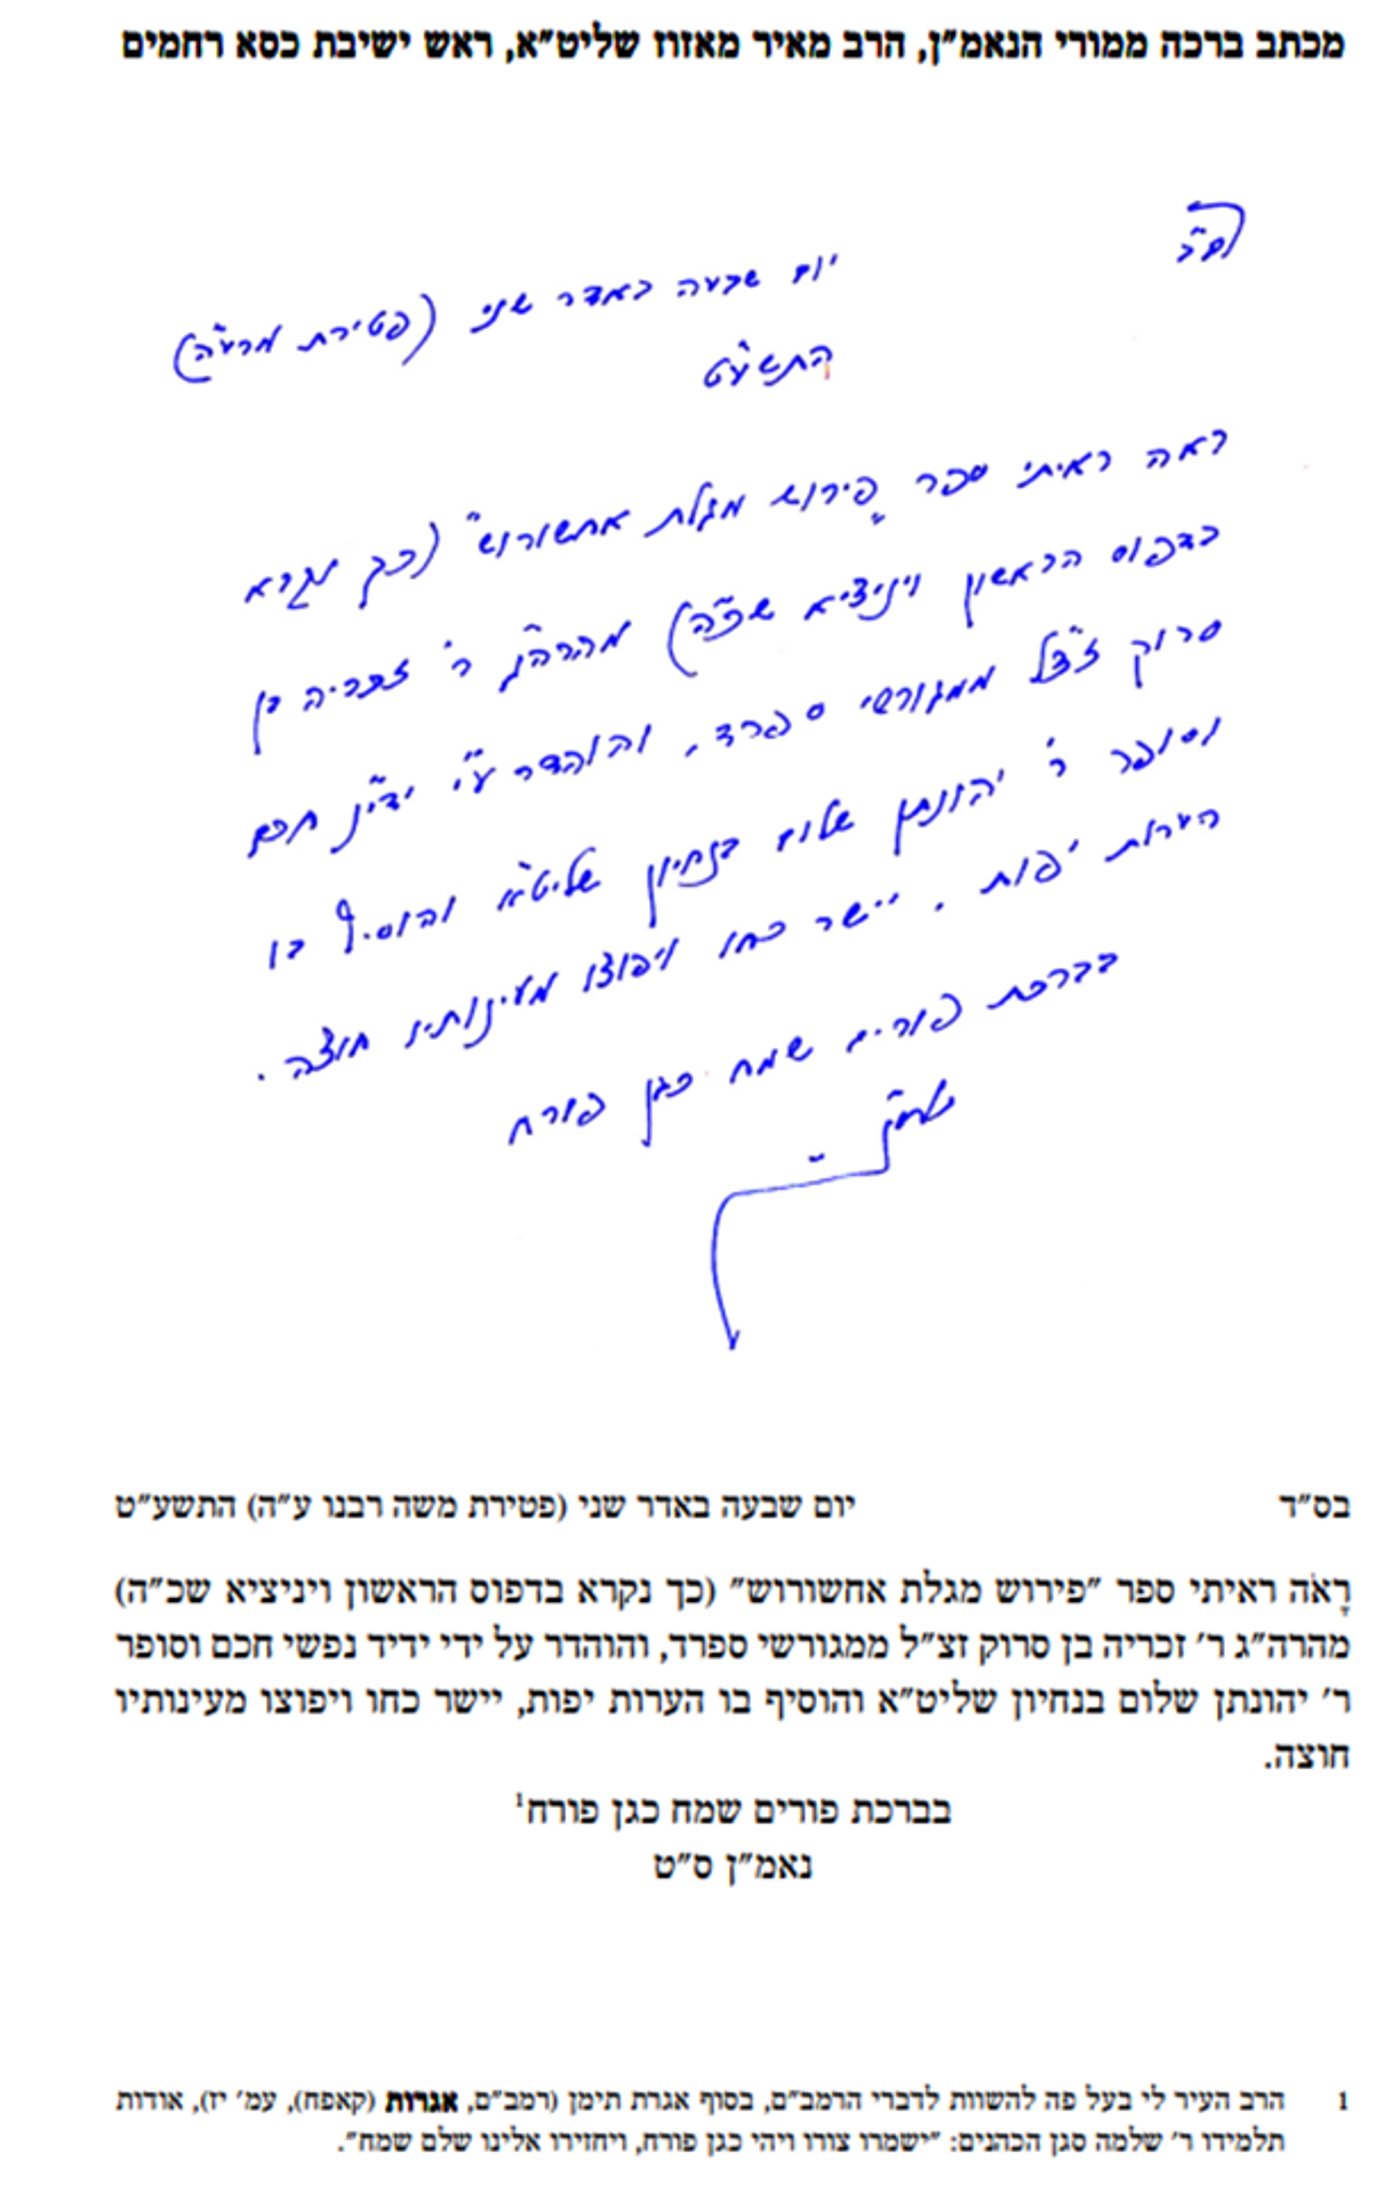 מכתב ברכה ממורי הנאמ"ן, הרב מאיר מאזוז שליט"א, ראש ישיבת כסא רחמים
בס"ד
יום שבעה באדר שני (פטירת מרע"ה)
התשע"ט
ראה ראיתי ספר "פירוש מגלת אחשורוש" (כך נקרא
בדפוס הראשון ויניציא שכ"ה) מהרה"ג ר' זכריה בן
סרוק זצ"ל ממגורשי ספרד, והוהדר ע"י ידי"נ חכם
וסופר ר' יהונתן שלום בנחיון שליט"א והוסיף בו
הערות יפות. יישר כחו ויפוצו מעינותיו חוצה.
בברכת פורים שמח כגן פורח
נאמ"ן
בס"ד יום שבעה באדר שני (פטירת משה רבנו ע"ה) התשע"ט
רָאֹה ראיתי ספר "פירוש מגלת אחשורוש" (כך נקרא בדפוס הראשון ויניציא שכ"ה)
מהרה"ג ר' זכריה בן סרוק זצ"ל ממגורשי ספרד, והוהדר על ידי ידיד נפשי חכם וסופר
ר' יהונתן שלום בנחיון שליט"א והוסיף בו הערות יפות, יישר כחו ויפוצו מעינותיו
חוצה.
בברכת פורים שמח כגן פורח¹
נאמ"ן ס"ט
1 הרב העיר לי בעל פה להשוות לדברי הרמב"ם, בסוף אגרת תימן (רמב"ם, אגרות (קאפח), עמ' יז), אודות
תלמידו ר' שלמה סגן הכהנים: "ישמרו צורו ויהי כגן פורח, ויחזירו אלינו שלם שמח".